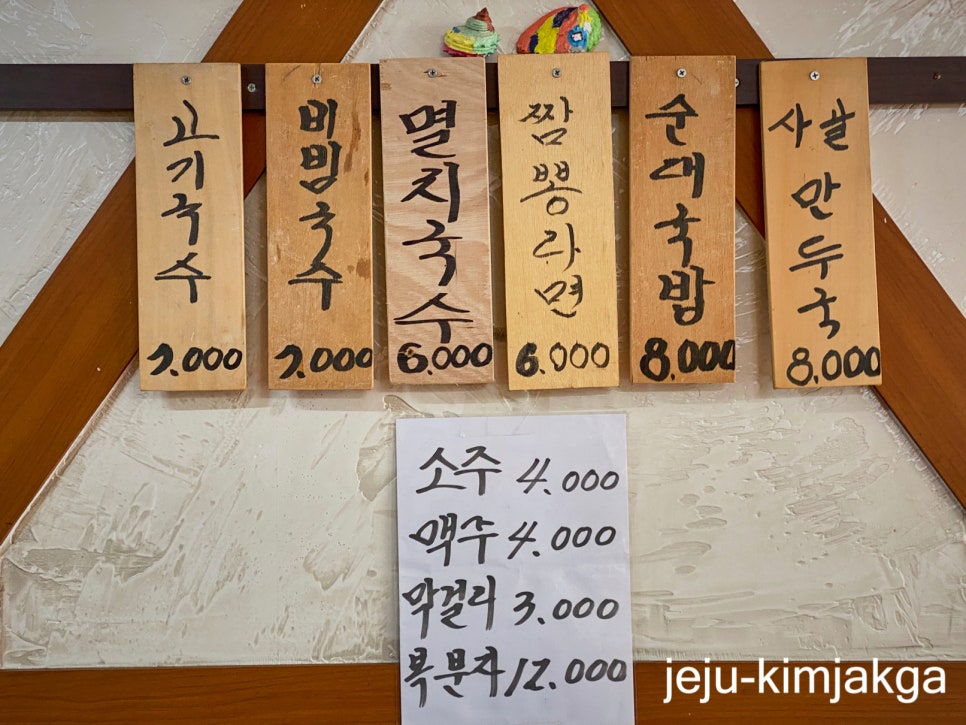 고기국수
7.000
비빔국수
7.000
멸치국수
6.000
짬뽕라면
6.000
순대국밥
8.000
사골
만두국
8.000
소주 4.000
맥주 4.000
막걸리 3.000
복분자 12.000
jeju-kimjakga